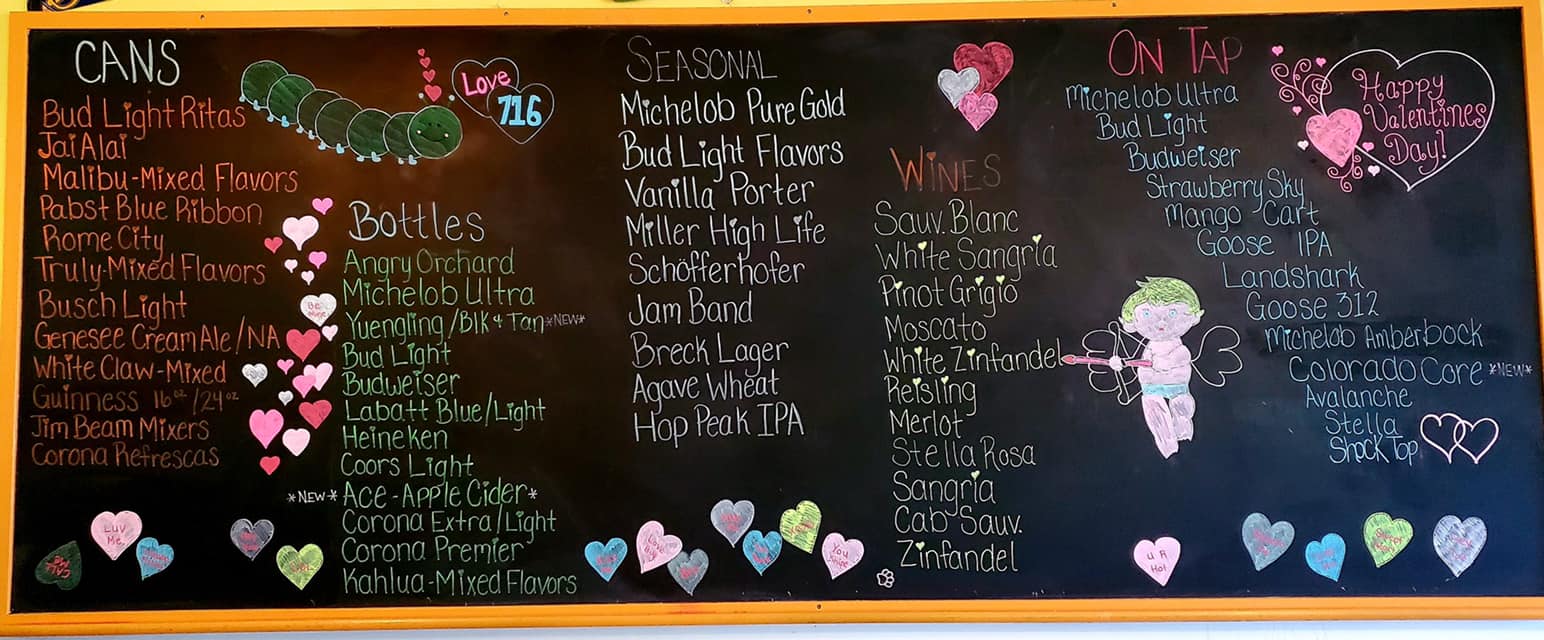 CANS
Bud Light Ritas
Jai Alai
Malibu-Mixed Flavors
Pabst Blue Ribbon
Rome City
Truly-Mixed Flavors
Busch Light
Genesee Cream Ale/NA
White Claw-Mixed
Guinness 16oz/24oz
Jim Beam Mixers
Corona Refrescas
Love
716
Bottles
Angry Orchard
Michelob Ultra
Yuengling/Blk & Tan *NEW*
Bud Light
Budweiser
Labatt Blue/Light
Heineken
Coors Light
*NEW* Ace-Apple Cider*
Corona Extra/Light
Corona Premier
Kahlua-Mixed Flavors
Be
Mine
SEASONAL
Michelob Pure Gold
Bud Light Flavors
Vanilla Porter
Miller High Life
Schöfferhofer
Jam Band
Breck Lager
Agave Wheat
Hop Peak IPA
WINES
Sauv. Blanc
White Sangria
Pinot Grigio
Moscato
White Zinfandel
Reisling
Merlot
Stella Rosa
Sangria
Cab Sauv.
Zinfandel
ON TAP
Michelob Ultra
Bud Light
Budweiser
Strawberry Sky
Mango Cart
Goose IPA
Landshark
Goose 312
Michelob Amberbock
Colorado Core *NEW*
Avalanche
Stella
Shock Top
Happy
Valentines
Day!
Luv
Me
U R
Hot